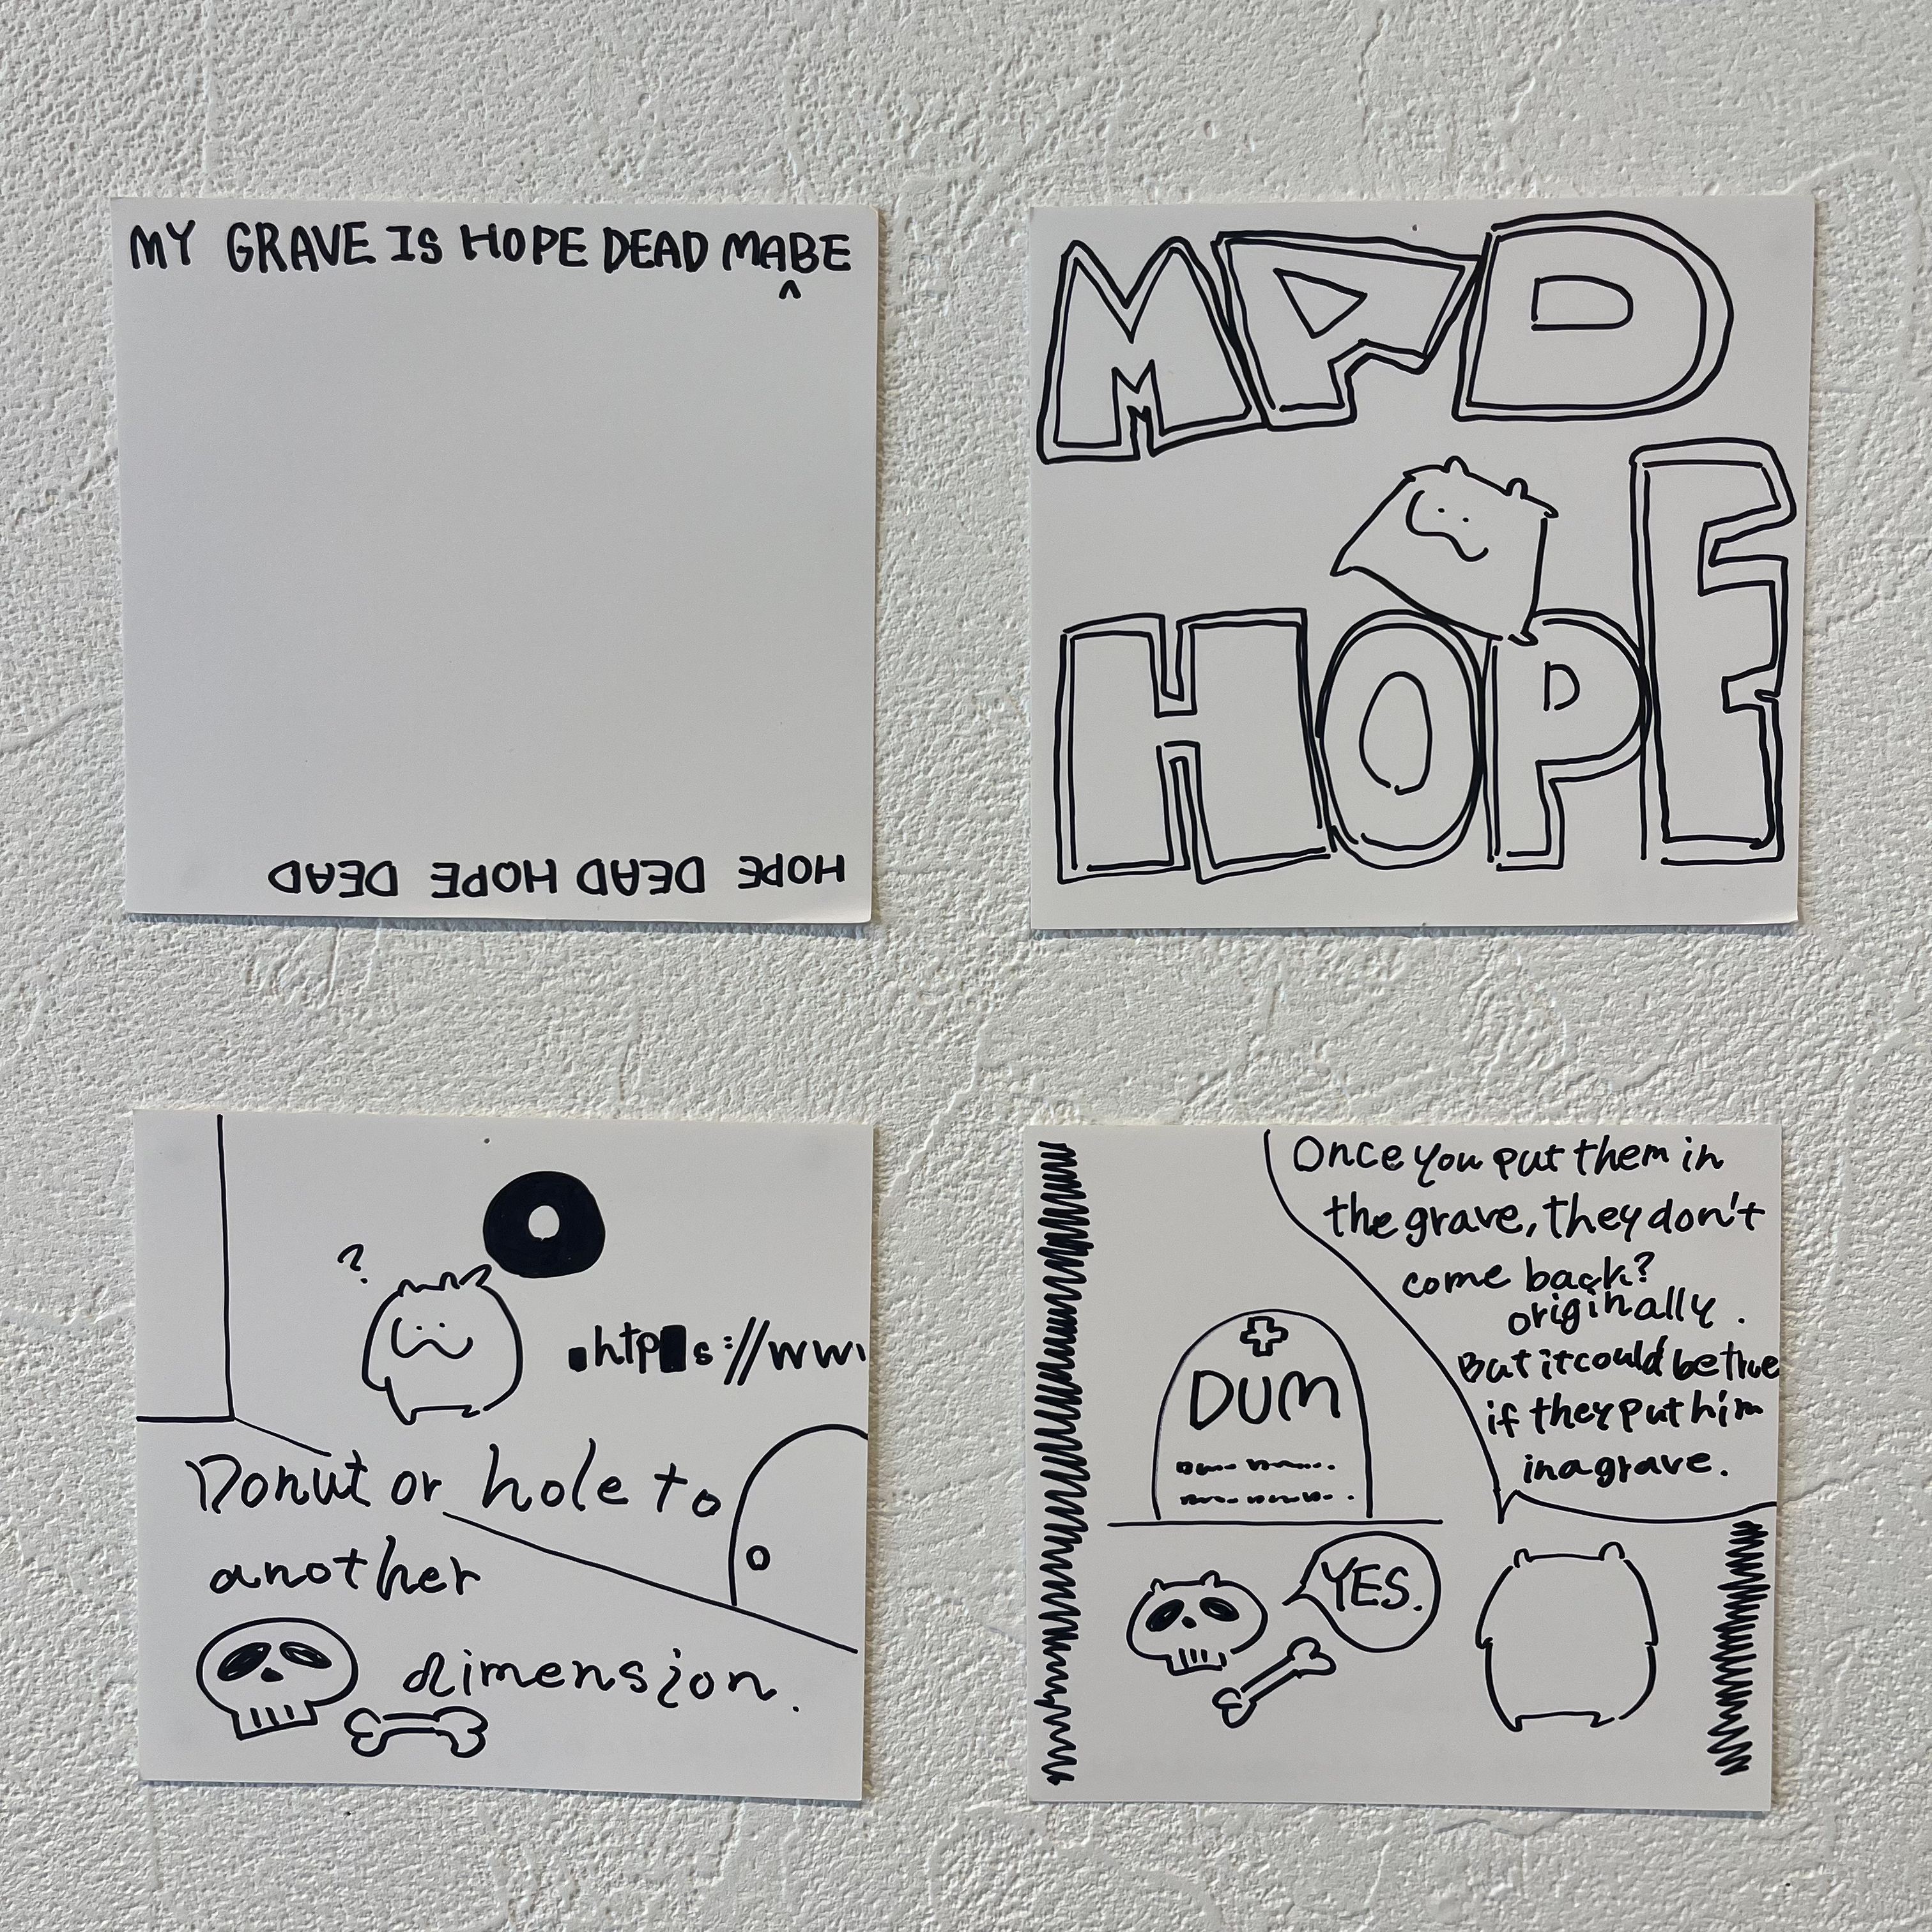 MY GRAVE IS HOPE DEAD MABE
^
HOPE DEAD HOPE DEAD
MAD
HOPE
?
htp s://ww
Donut or hole to
another
dimension.
Once you put them in
the grave, they don't
come back?
originally.
But it could be true
if they put him
in a grave.
DUM
YES.